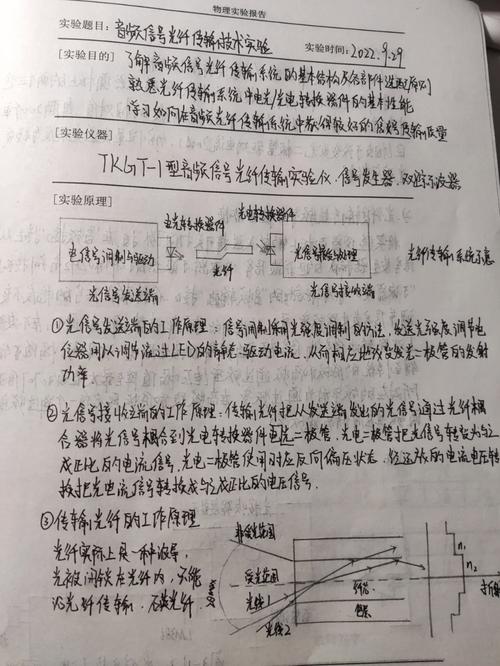 物理实验报告
实验题目：音频信号光纤传输技术实验 实验时间：2022.9.29
[实验目的] 了解音频信号光纤传输系统的基本结构及各部件选配原则
熟悉光纤传输系统中电光/光电转换器件的基本性能
学习如何在音频光纤传输系统中获得较好的信号传输质量
[实验仪器]
TKGT-1型音频信号光纤传输实验仪，信号发生器，双踪示波器
[实验原理]
电光转换器件 光电转换器件
电信号调制与驱动 光纤 光信号接收处理 光纤传输系统示意
光信号发送端 光信号接收端
①光信号发送端的工作原理：信号调制采用光强度调制的方法，发送光强度调节电
位器用以调节流过LED的静态驱动电流，从而相应地改变发光二极管的发射
功率
②光信号接收立端的工作原理：传输光纤把从发送端发出的光信号通过光纤耦
合器将光信号耦合到光电转换器件光电二极管，光电二极管把光信号转变为与之
成正比的电流信号，光电二极管使用时应反向偏压状态，经运放的电流电压转
换把光电流信号转换成与之成正比的电压信号.
③传输光纤的工作原理
光纤实际上是一种波导，
光被闭锁在光纤内，只能
沿光纤传输，
非受光范围
受光范围
光线1
光线2
纤芯
包层
n₁
n₂